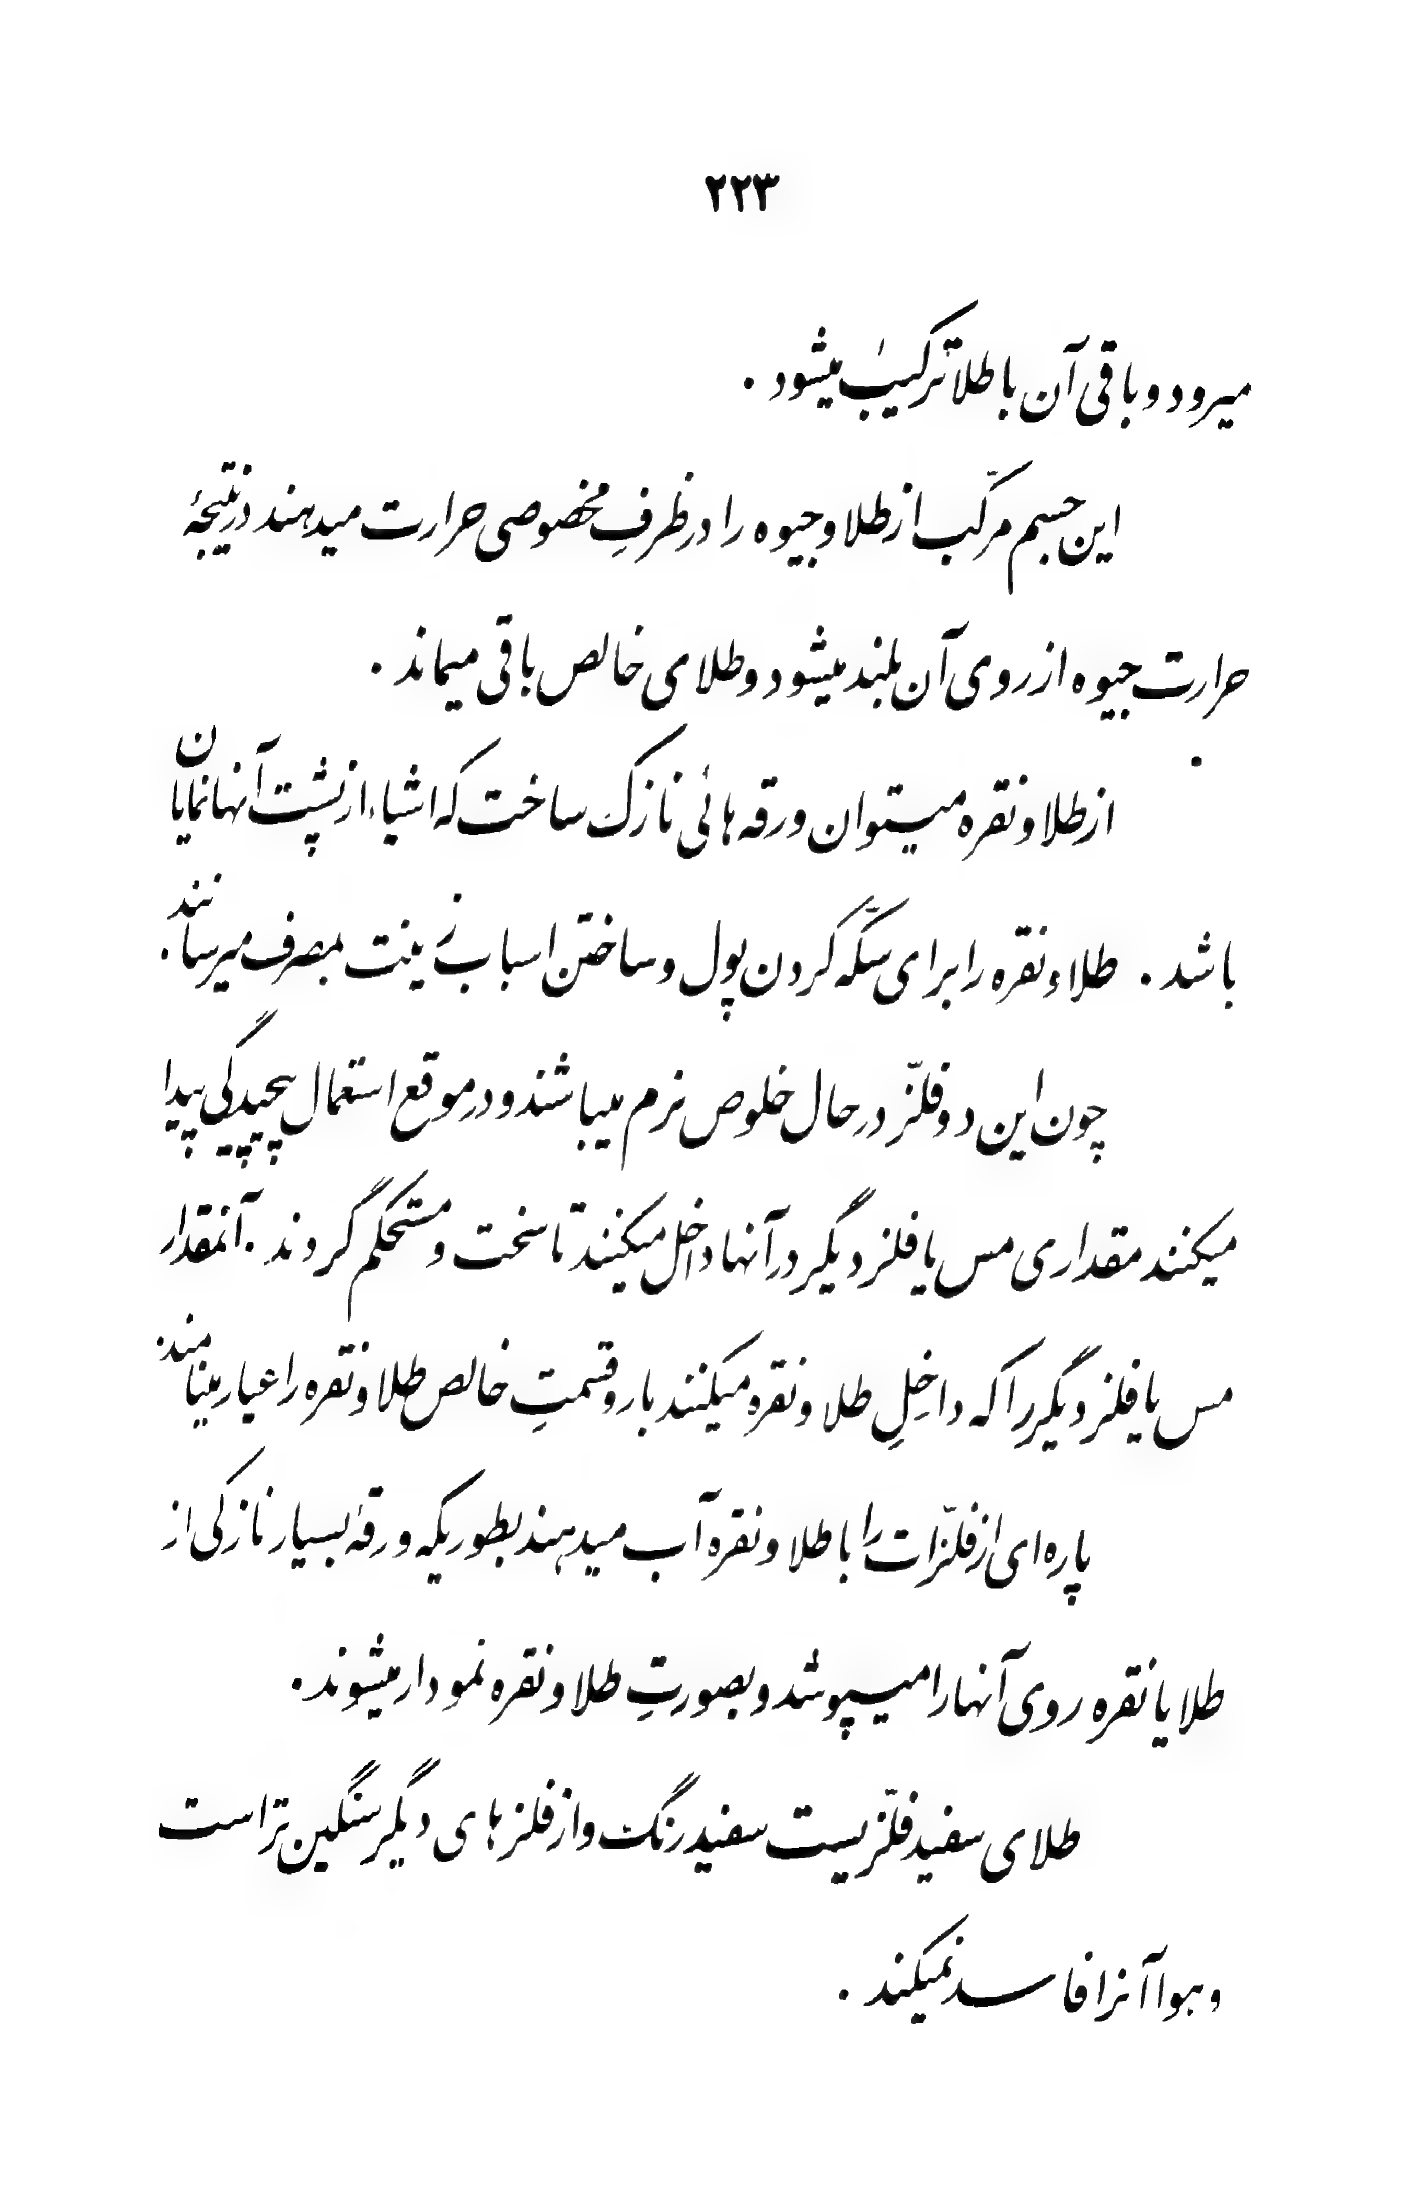 ۲۲۳
میرود و باقی آن با طلا ترکیب میشود .
این جسم مرکّب از طلا و جیوه را در ظرفِ مخصوصی حرارت میدهند در نتیجهٔ
حرارت جیوه از روی آن بلند میشود و طلای خالص باقی میماند .
از طلا و نقره میتوان ورقه هائی نازک ساخت که اشیاء از پشت آنها نمایان
باشد . طلاء و نقره را برای سکّه کردن پول و ساختن اسباب زینت بمصرف میرسانند .
چون این دو فلّز در حال خلوص نرم میباشند و در موقع استعمال پیچیدگی پیدا
میکنند مقداری مس یا فلز دیگر در آنها داخل میکنند تا سخت و مستحکم گردند . آنمقدار
مس یا فلز دیگر را که داخِلِ طلا و نقره میکنند بار و قسمتِ خالص طلا و نقره را عیار مینامند .
پاره ای از فلّزات را با طلا و نقره آب میدهند بطوریکه ورقهٔ بسیار نازکی از
طلا یا نقره روی آنها را میپوشد و بصورتِ طلا و نقره نمودار میشوند .
طلای سفید فلّزیست سفید رنگ و از فلزهای دیگر سنگین تر است
و هوا آنرا فاسد نمیکند .